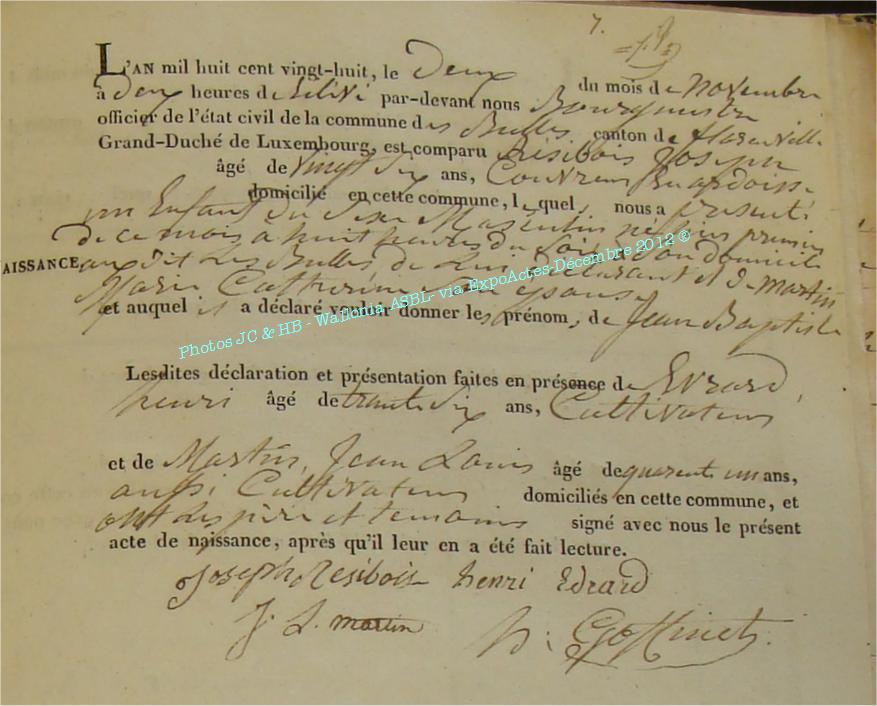 7.
L'AN mil huit cent vingt-huit, le Deux du mois de novembre
à deux heures de relevé par-devant nous Bourgmestre
officier de l'état civil de la commune des Bulles, canton de florenville
Grand-Duché de Luxembourg, est comparu Résibois Joseph
âgé de vingt six ans, Couvreur en ardoise
domicilié en cette commune, lequel nous a présenté
un Enfant du sexe Masculin né hier premier
de ce mois à huit heures du soir en son domicile
AISSANCE au dit Les Bulles, de Lui Déclarant et de Martin
Marie Catherine son épouse
et auquel il a déclaré vouloir donner les prénom, de Jean Baptiste
Photos JC & HB - Wallonia ASBL- via ExpoActes-Décembre 2012 ®
Lesdites déclaration et présentation faites en présence de Evrard,
henri âgé de trente six ans, Cultivateur
et de Martin, Jean Louis âgé de quarente un ans,
aussi Cultivateur domiciliés en cette commune, et
ont les père et temoins signé avec nous le présent
acte de naissance, après qu'il leur en a été fait lecture.
Joseph Resibois henri Edrard
J. L. martin
h: Goffinet